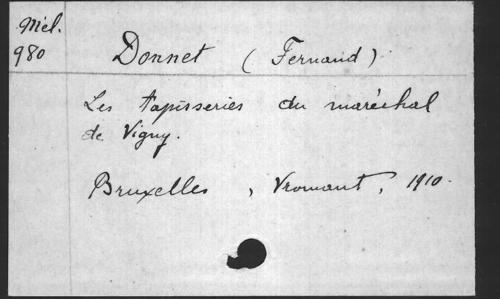 Mél.
980
Donnet (Fernand)
Les tapisseries du maréchal
de Vigny.
Bruxelles, Vromant, 1910.